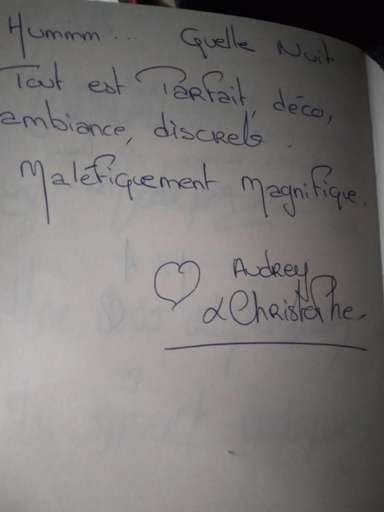 Hummm... Quelle Nuit
Tout est Parfait, déco,
ambiance, discret.
Maléfiquement Magnifique.
♡ Audrey
& Christophe.